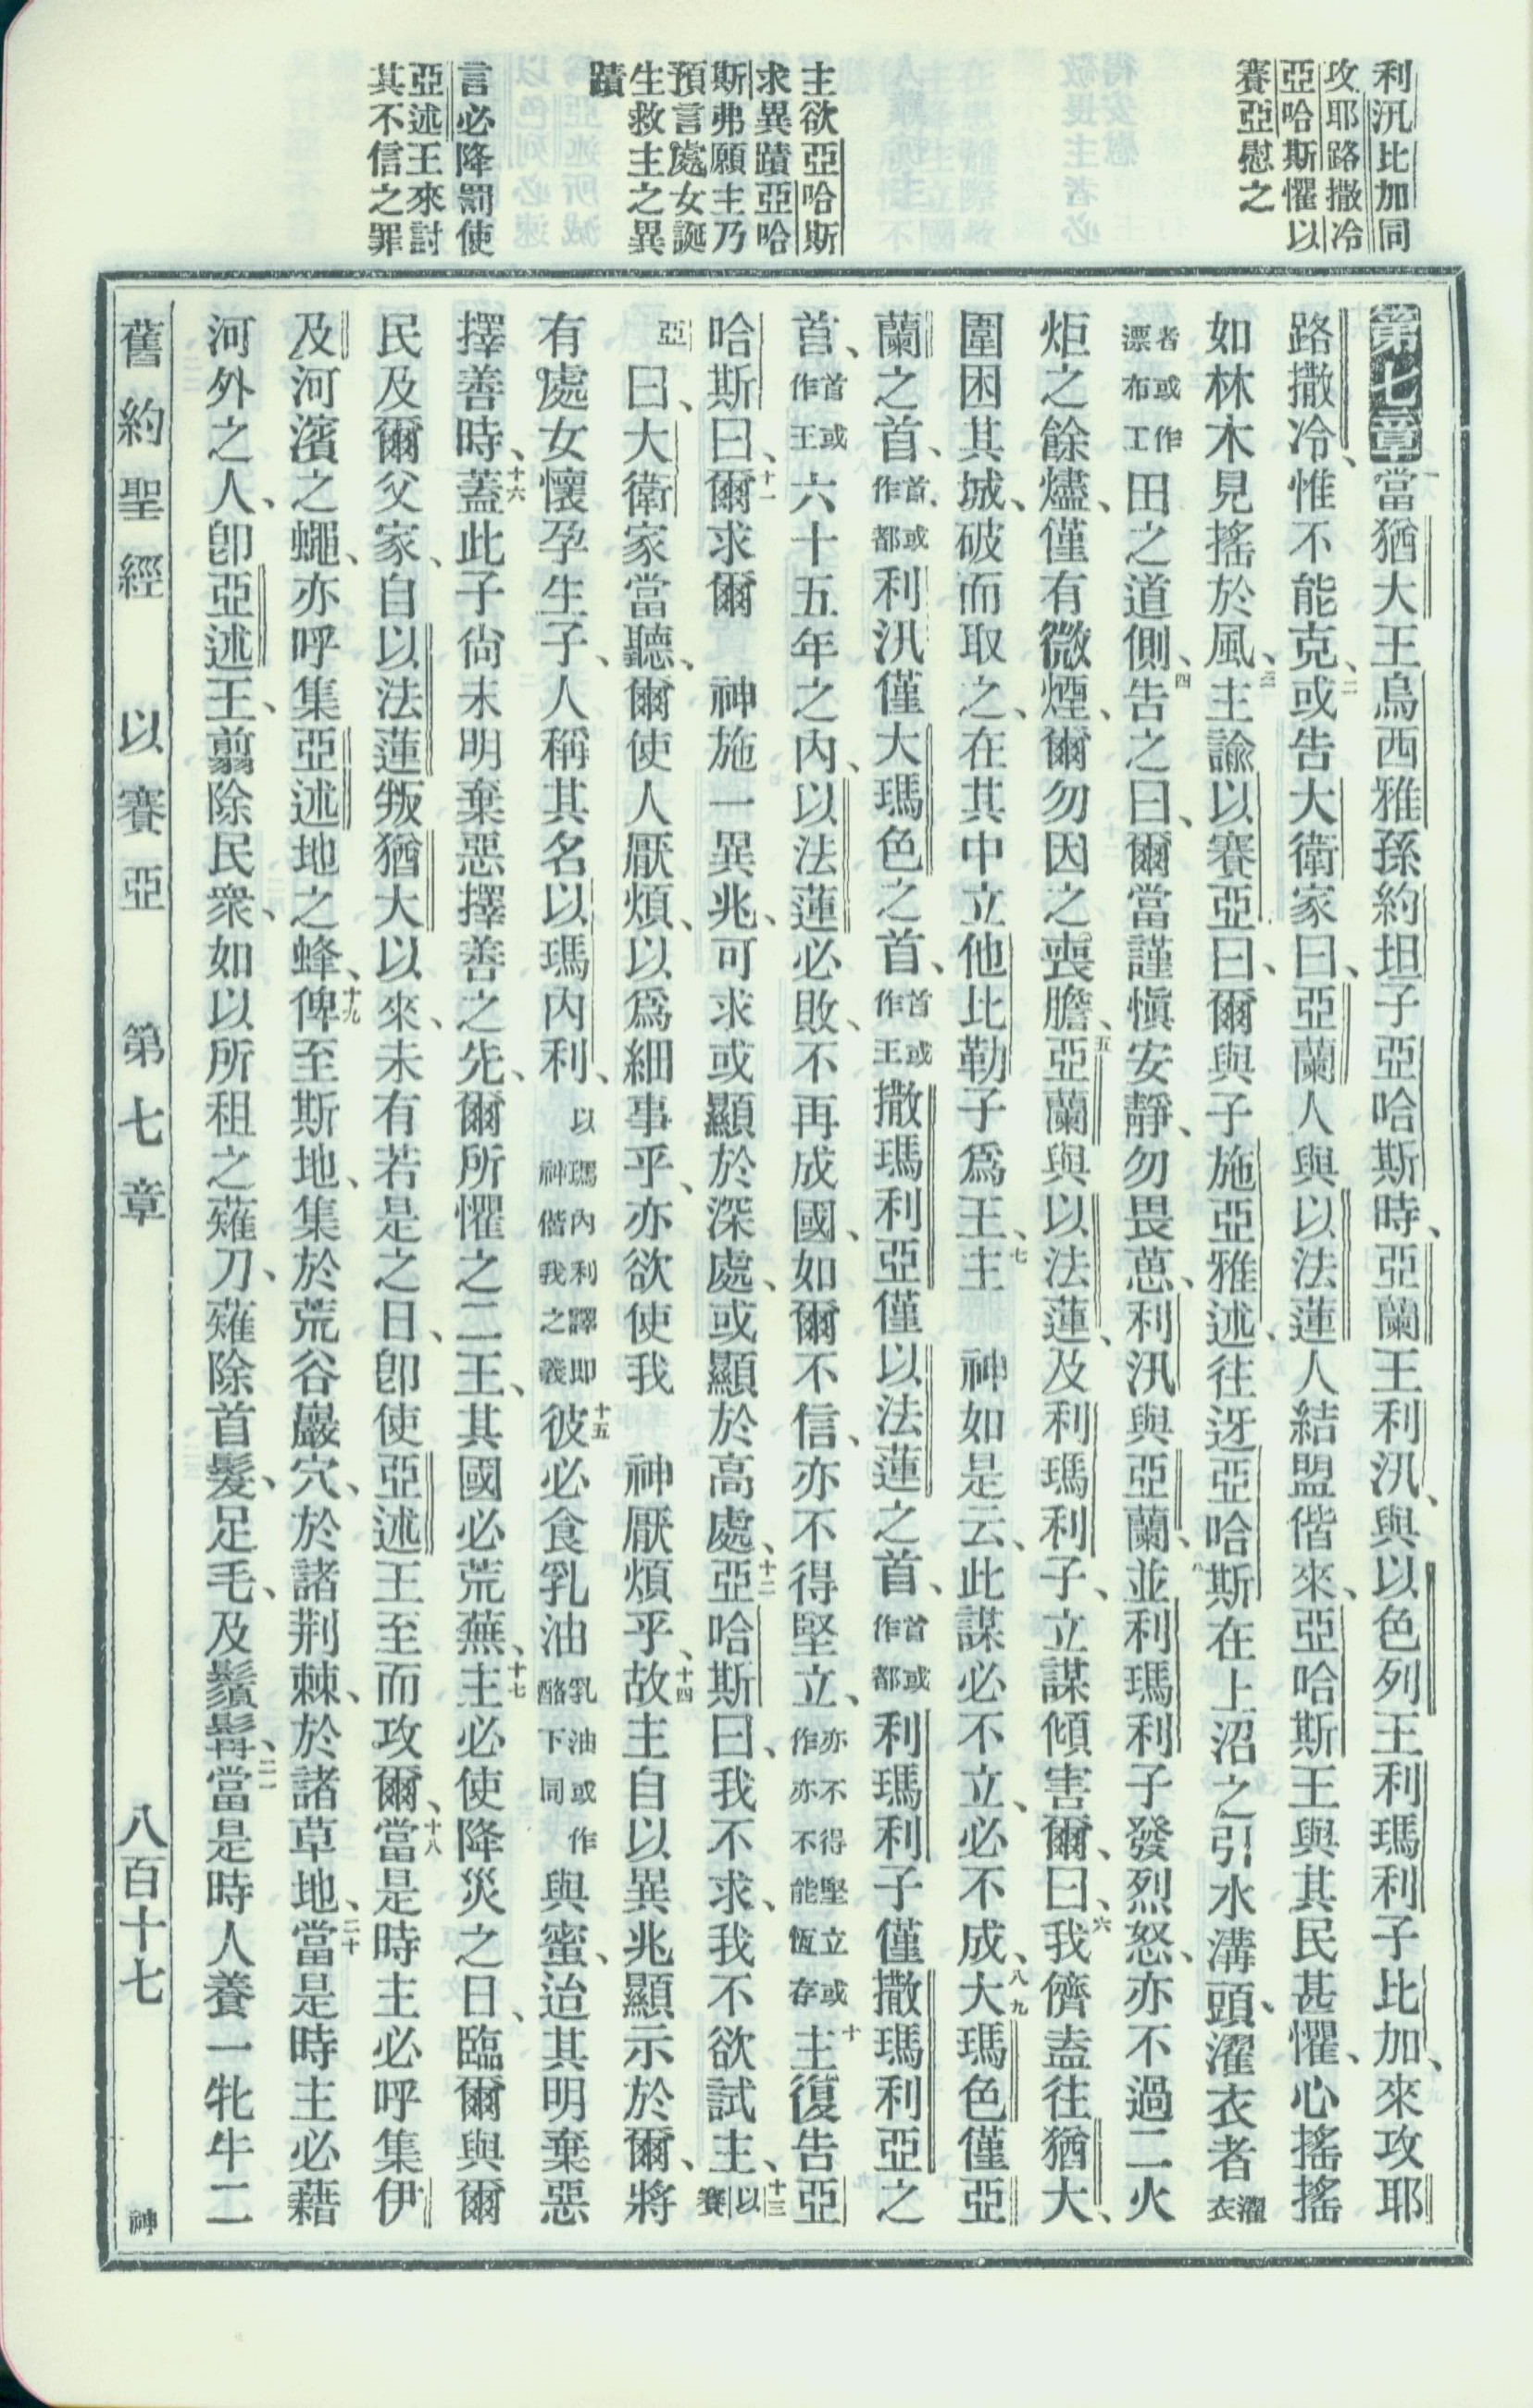 利汛比加同
攻耶路撒冷
亞哈斯懼以
賽亞慰之
主欲亞哈斯
求異蹟亞哈
斯弗願主乃
預言處女誕
生救主之異
蹟
言必降罰使
亞述王來討
其不信之罪
第七章一當猶大王烏西雅孫約坦子亞哈斯時、亞蘭王利汛、與以色列王利瑪利子比加、來攻耶
路撒冷、惟不能克、二或告大衛家曰、亞蘭人與以法蓮人結盟偕來、亞哈斯王與其民甚懼、心搖搖
如林木見搖於風、三主諭以賽亞曰、爾與子施亞雅述、往迓亞哈斯在上沼之引水溝頭、濯衣者濯衣
者或作漂布工田之道側、四告之曰、爾當謹愼安靜、勿畏葸、利汛與亞蘭、並利瑪利子發烈怒、亦不過二火
炬之餘燼、僅有微煙、爾勿因之喪膽、五亞蘭與以法蓮、及利瑪利子、立謀傾害爾、曰、六我儕盍往猶大、
圍困其城、破而取之、在其中立他比勒子爲王、七主　神如是云、此謀必不立、必不成、八九大瑪色僅亞
蘭之首、首或作都利汛僅大瑪色之首、首或作王撒瑪利亞僅以法蓮之首、首或作都利瑪利子僅撒瑪利亞之
首、首或作王六十五年之內、以法蓮必敗、不再成國、如爾不信、亦不得堅立、亦不得堅立或作亦不能恆存十主復告亞
哈斯曰、十一爾求爾　神施一異兆、可求或顯於深處、或顯於高處、十二亞哈斯曰、我不求、我不欲試主、十三以賽
亞曰、大衛家當聽、爾使人厭煩、以爲細事乎、亦欲使我　神厭煩乎、十四故主自以異兆顯示於爾、將
有處女懷孕生子、人稱其名以瑪內利、以瑪內利譯即神偕我之義十五彼必食乳油乳油或作酪下同與蜜、迨其明棄惡
擇善時、十六蓋此子尙未明棄惡擇善之先、爾所懼之二王、其國必荒蕪、十七主必使降災之日、臨爾與爾
民及爾父家、自以法蓮叛猶大以來、未有若是之日、卽使亞述王至而攻爾、十八當是時主必呼集伊
及河濱之蠅、亦呼集亞述地之蜂、十九俾至斯地、集於荒谷巖穴、於諸荆棘、於諸草地、二十當是時主必藉
河外之人、卽亞述王、翦除民衆、如以所租之薙刀、薙除首髮、足毛、及鬚髯、二一當是時人養一牝牛二
舊約聖經　以賽亞　第七章　八百十七　神